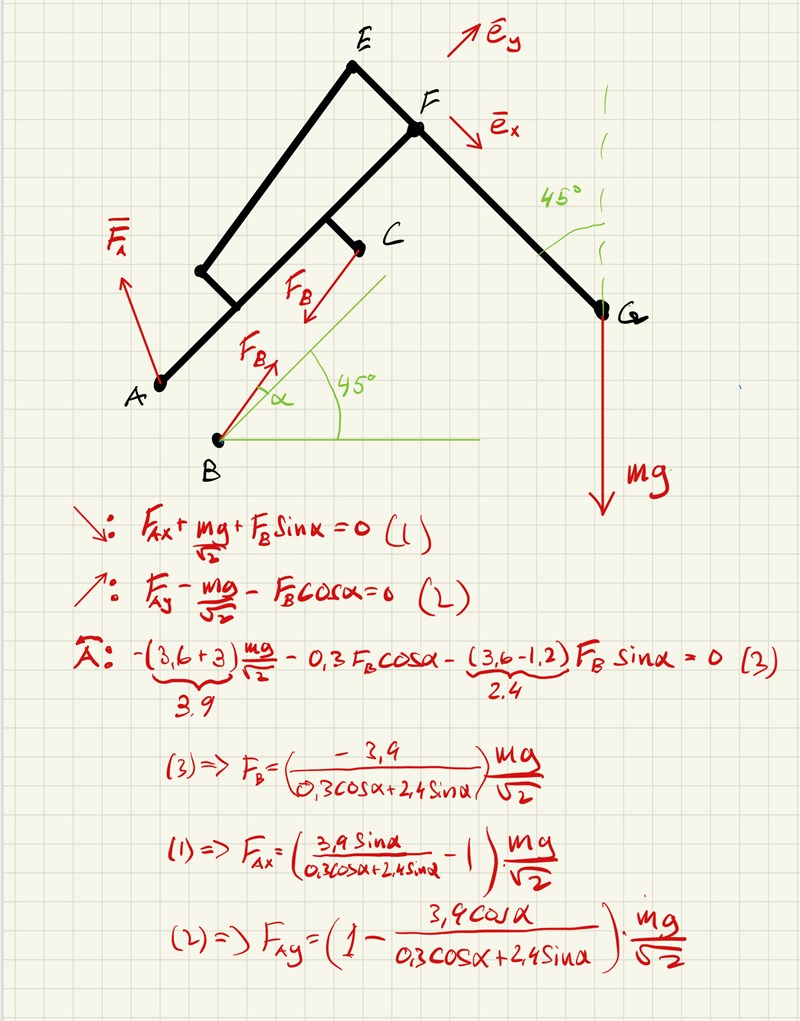 E
ē_y
F
ē_x
45°
F̄_A
C
F_B
G
F_B
45°
α
A
B
mg
↘: F_Ax + mg/√2 + F_B sinα = 0 (1)
↗: F_Ay - mg/√2 - F_B cosα = 0 (2)
A: -(3,6+3) mg/√2 - 0,3 F_B cosα - (3,6-1,2) F_B sinα = 0 (3)
3.9 2.4
(3) => F_B = (-3,9/(0,3cosα+2,4sinα)) mg/√2
(1) => F_Ax = (3,9 sinα/(0,3cosα+2,4sinα) - 1) · mg/√2
(2) => F_Ay = (1 - 3,9cosα/(0,3cosα+2,4sinα)) · mg/√2